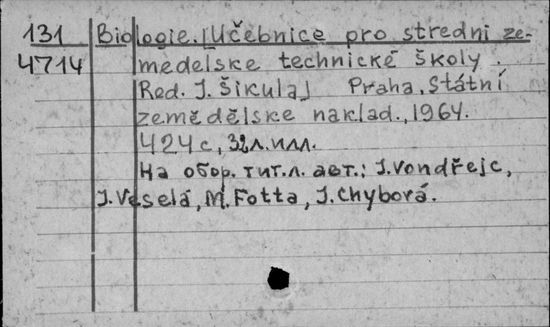 131 Biologie. [Učebnice pro stredni ze-
4714 medelske technické školy.
Red. J. Šikula] Praha, Státní
zemědělske naklad., 1964.
424 с, 32 л. илл.
На обор. тит. л. авт.: J. Vondřejc,
J. Veselá, M. Fotta, J. Chyborá.